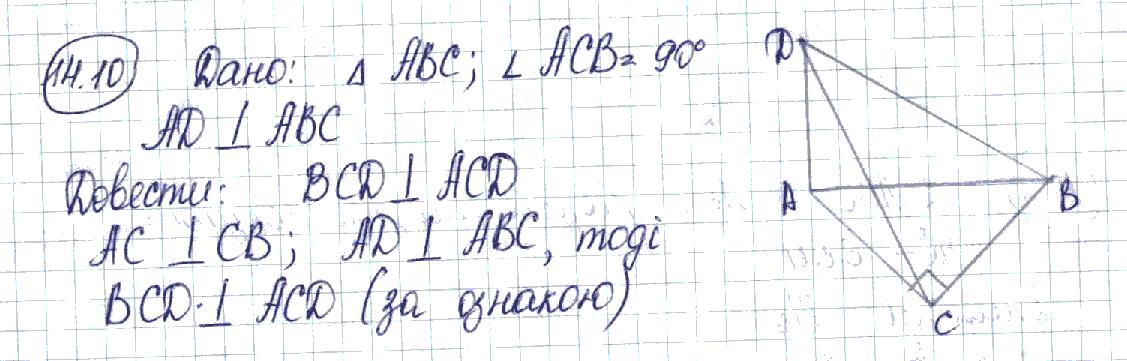 14.10 Дано: △ ABC; ∠ ACB = 90°
AD ⊥ ABC
Довести: BCD ⊥ ACD
AC ⊥ CB; AD ⊥ ABC, тоді
BCD ⊥ ACD (за ознакою)
D
A
B
C